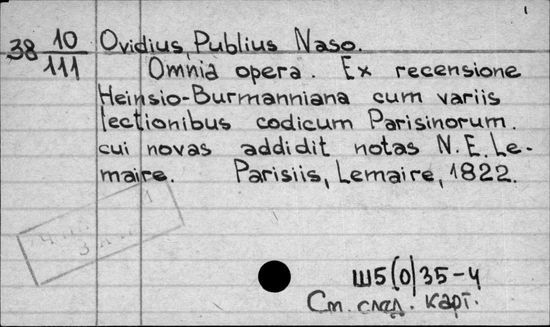 38 10/111 Ovidius, Publius Naso.
Omnia opera. Ex recensione
Heinsio-Burmanniana cum variis
lectionibus codicum Parisinorum.
cui novas addidit notas N. E. Le-
maire. Parisiis, Lemaire, 1822.
Ш5(0)35-4
См. след. карт.